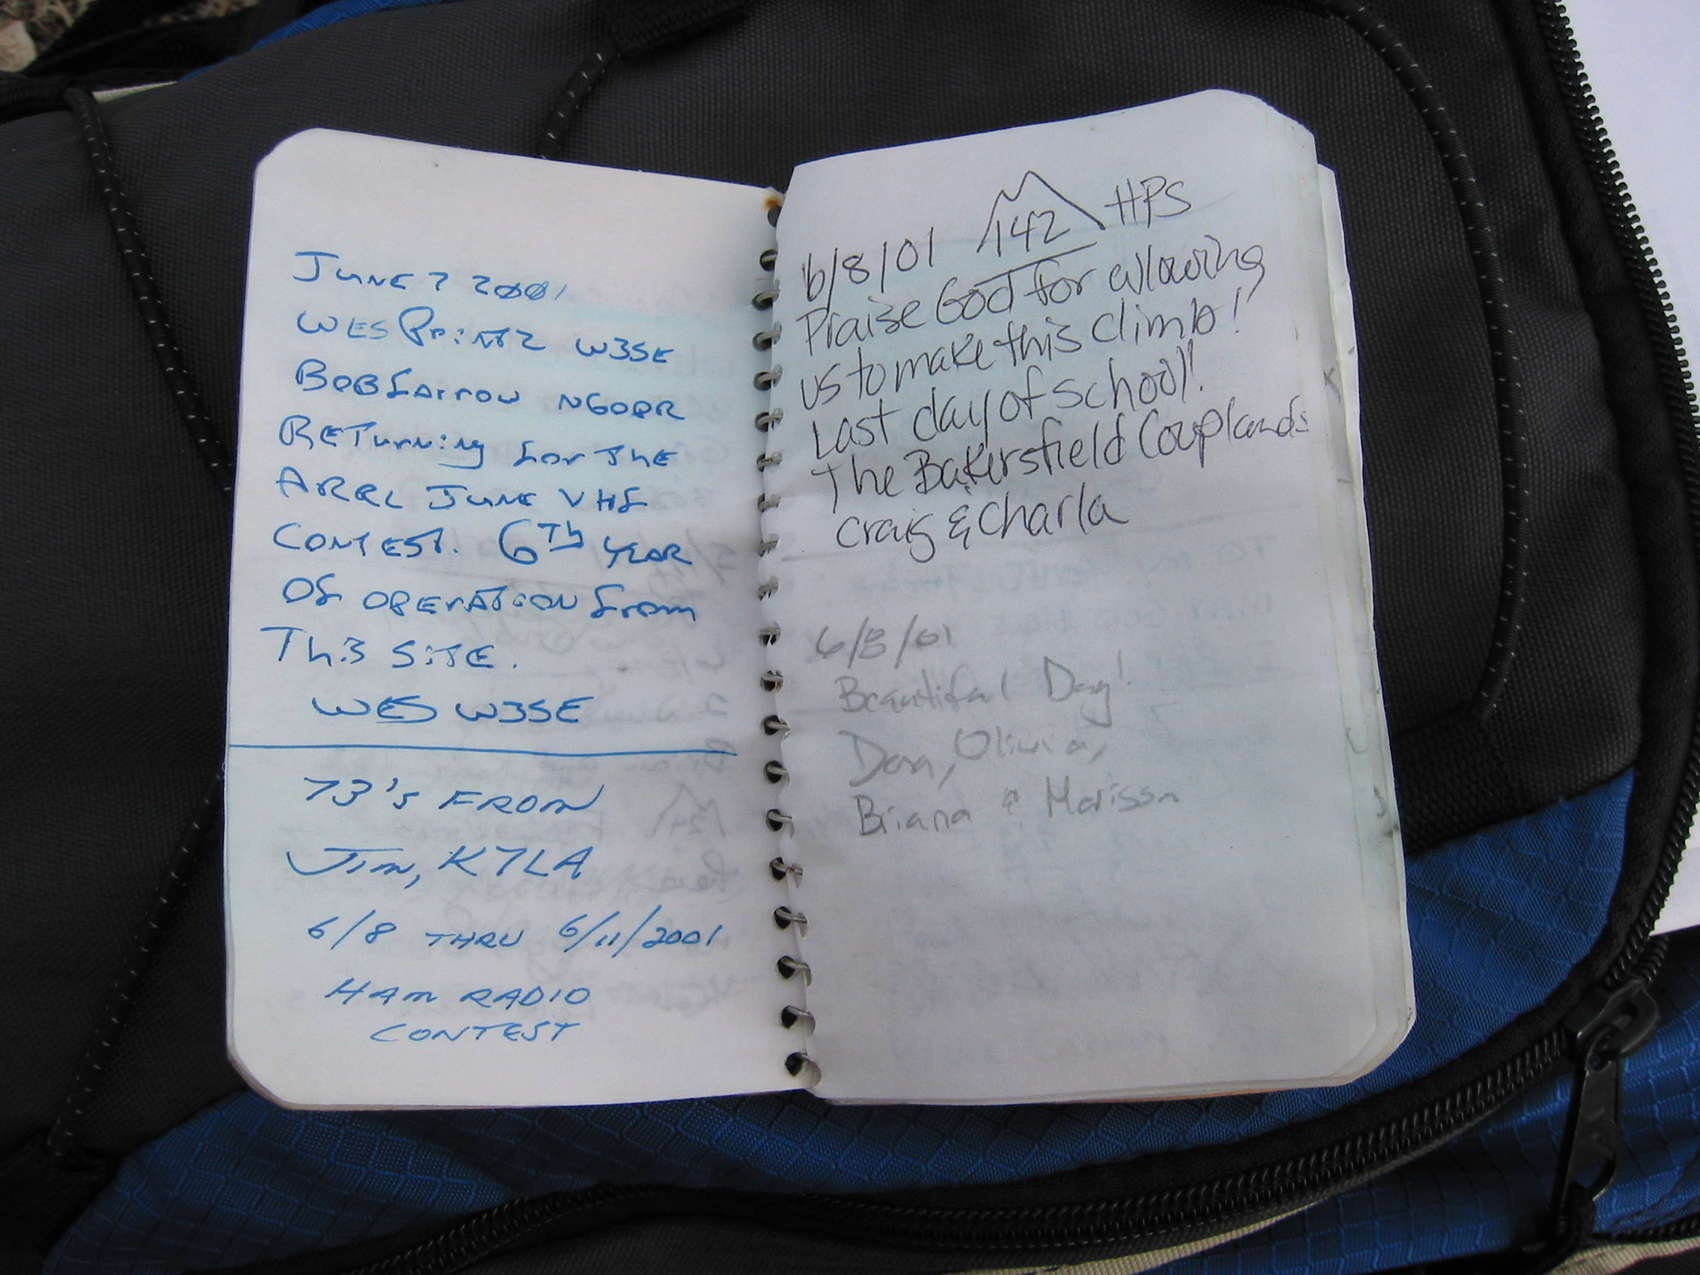 JUNE 7 2001
WES Printz W3SE
BOB Farrow N6OPR
RETurning for THE
ARRL JUNE VHF
CONTEST. 6Th YEAR
OF OPERATION from
This SITE.
WES W3SE
73's FROM
Jim, K7LA
6/8 THRU 6/11/2001
HAM RADIO
CONTEST
6/8/01 142 HPS
Praise God for allowing
us to make this climb!
Last day of school!
The Bakersfield Couplands
Craig & Charla
6/8/01
Beautiful Day!
Dan, Olivia,
Briana & Marissa